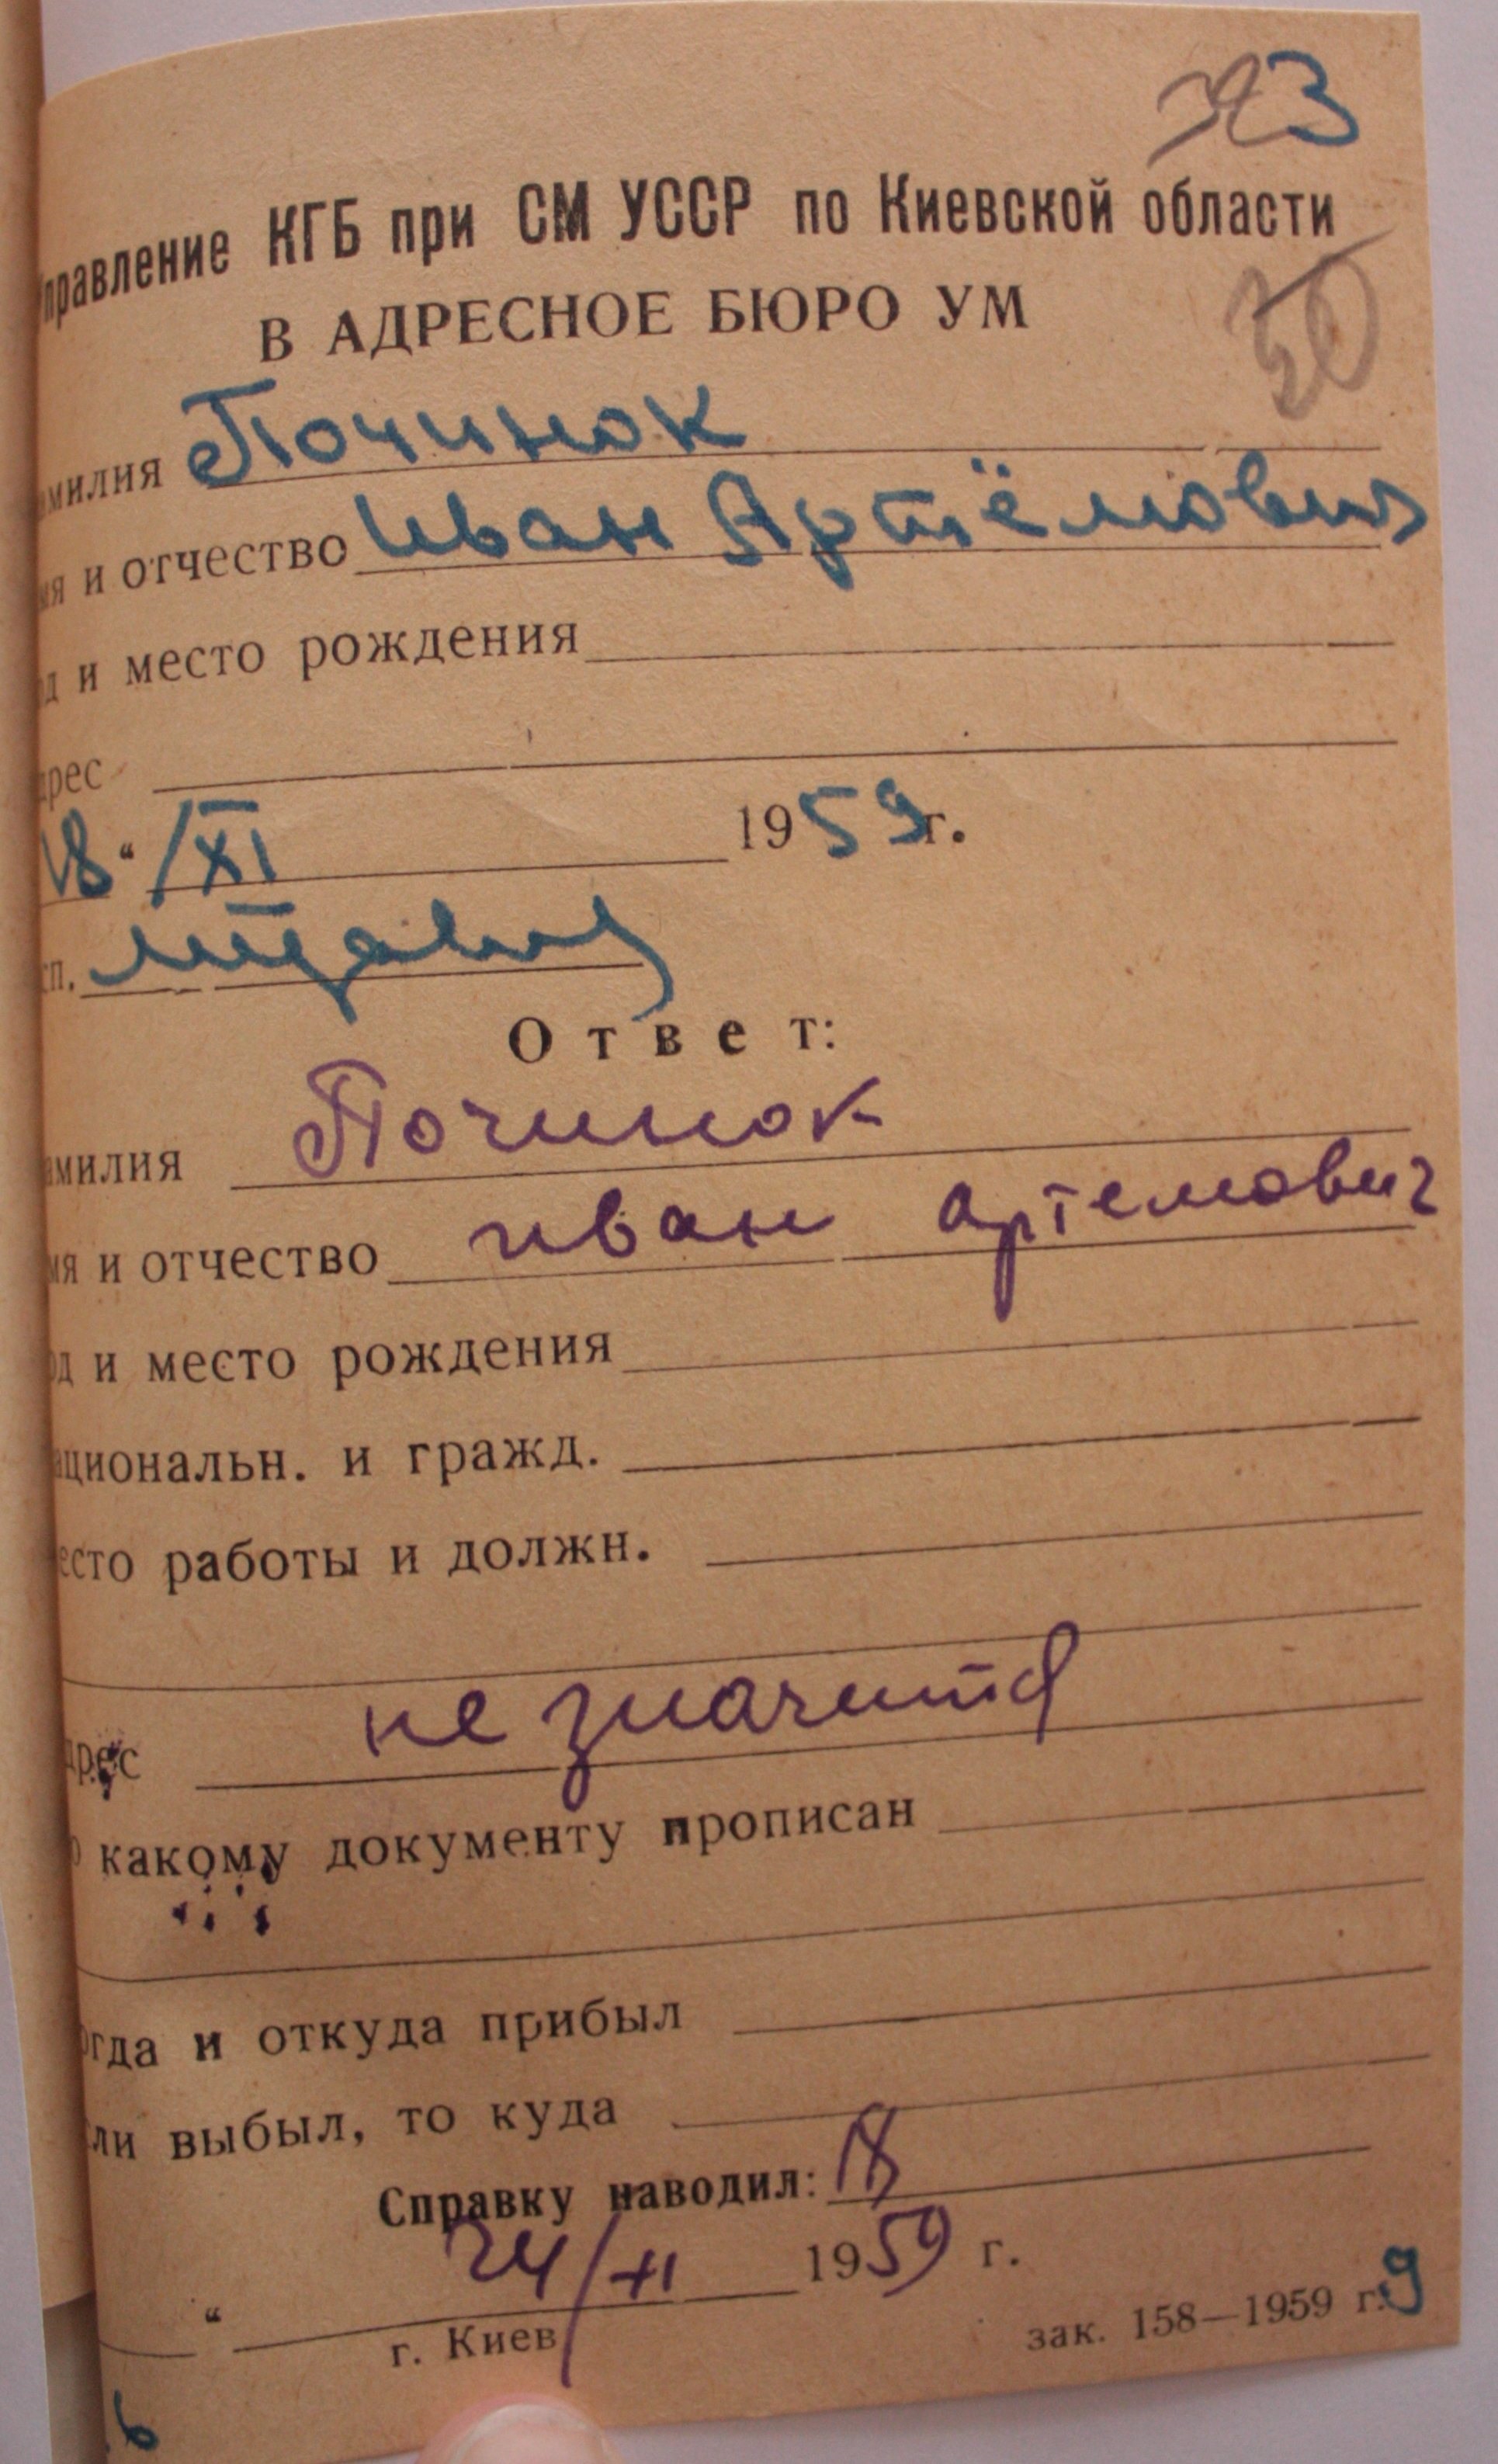 323
Управление КГБ при СМ УССР по Киевской области
50
В АДРЕСНОЕ БЮРО УМ
амилия Починок
мя и отчество Иван Артёмович
од и место рождения
дрес
18 “ /XI 1959 г.
сп.
Ответ:
амилия Починок
мя и отчество иван артемович
од и место рождения
ациональн. и гражд.
есто работы и должн.
дрес не значится
о какому документу прописан
огда и откуда прибыл
ли выбыл, то куда
Справку наводил: 18
“ 24/XI 1959 г.
г. Киев
зак. 158—1959 г. 9